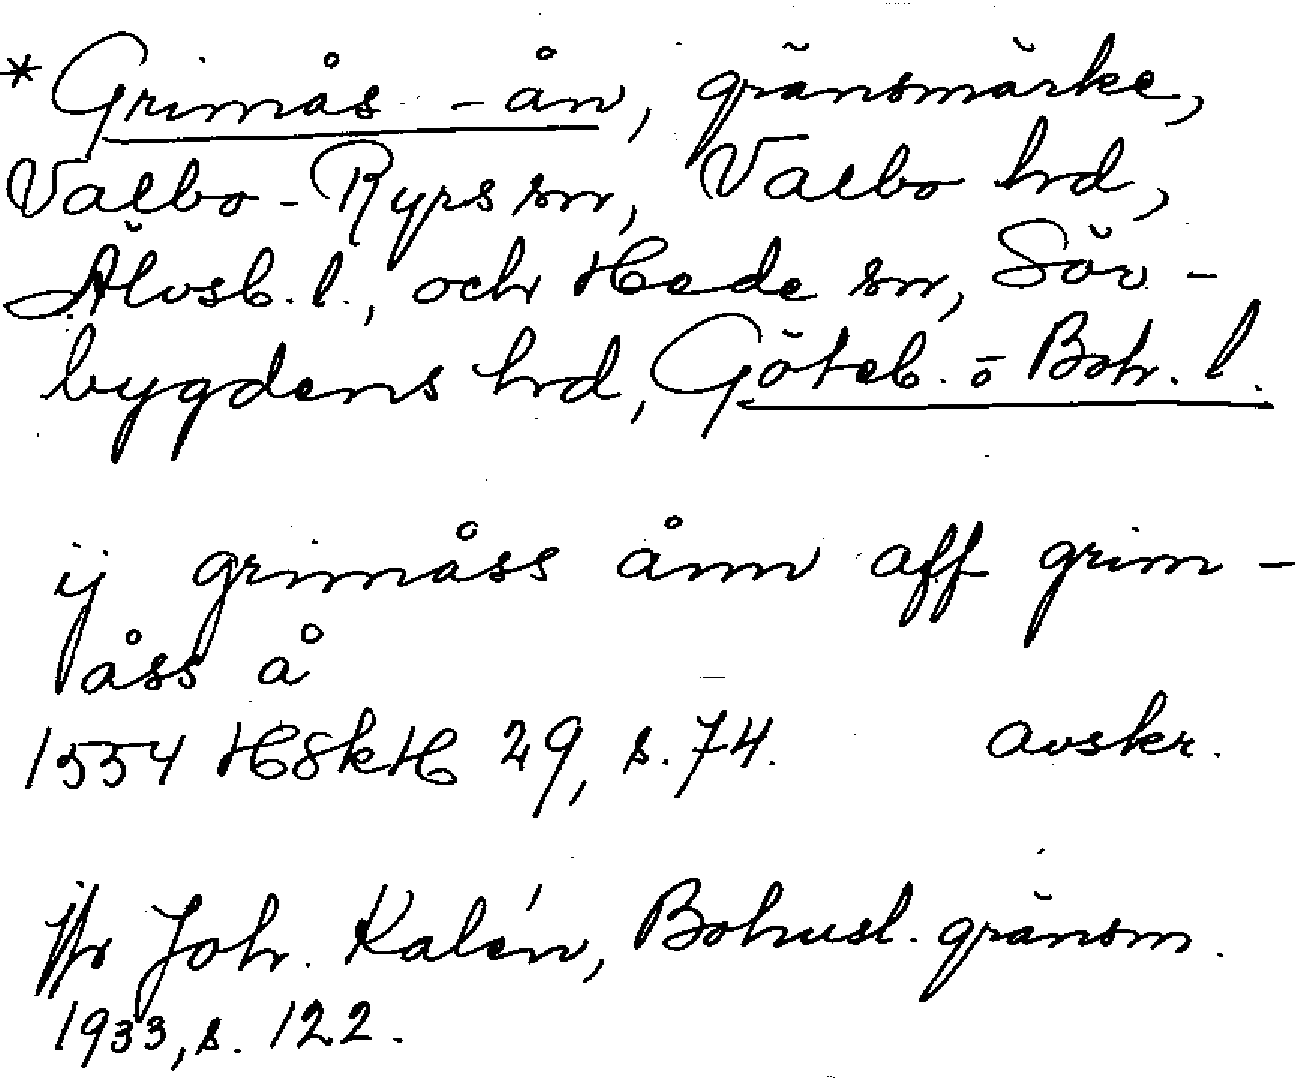 * Grimås - ån, gränsmärke,
Valbo - Ryrs sn, Valbo hrd,
Älvsb. l., och Hede sn, Sör -
bygdens hrd, Göteb. o Boh. l.
ij grimåss ånn aff grim -
åss å
1554 HSkH 29, s. 74. avskr.
jfr Joh. Kalén, Bohusl. gränsm.
1933, s. 122.